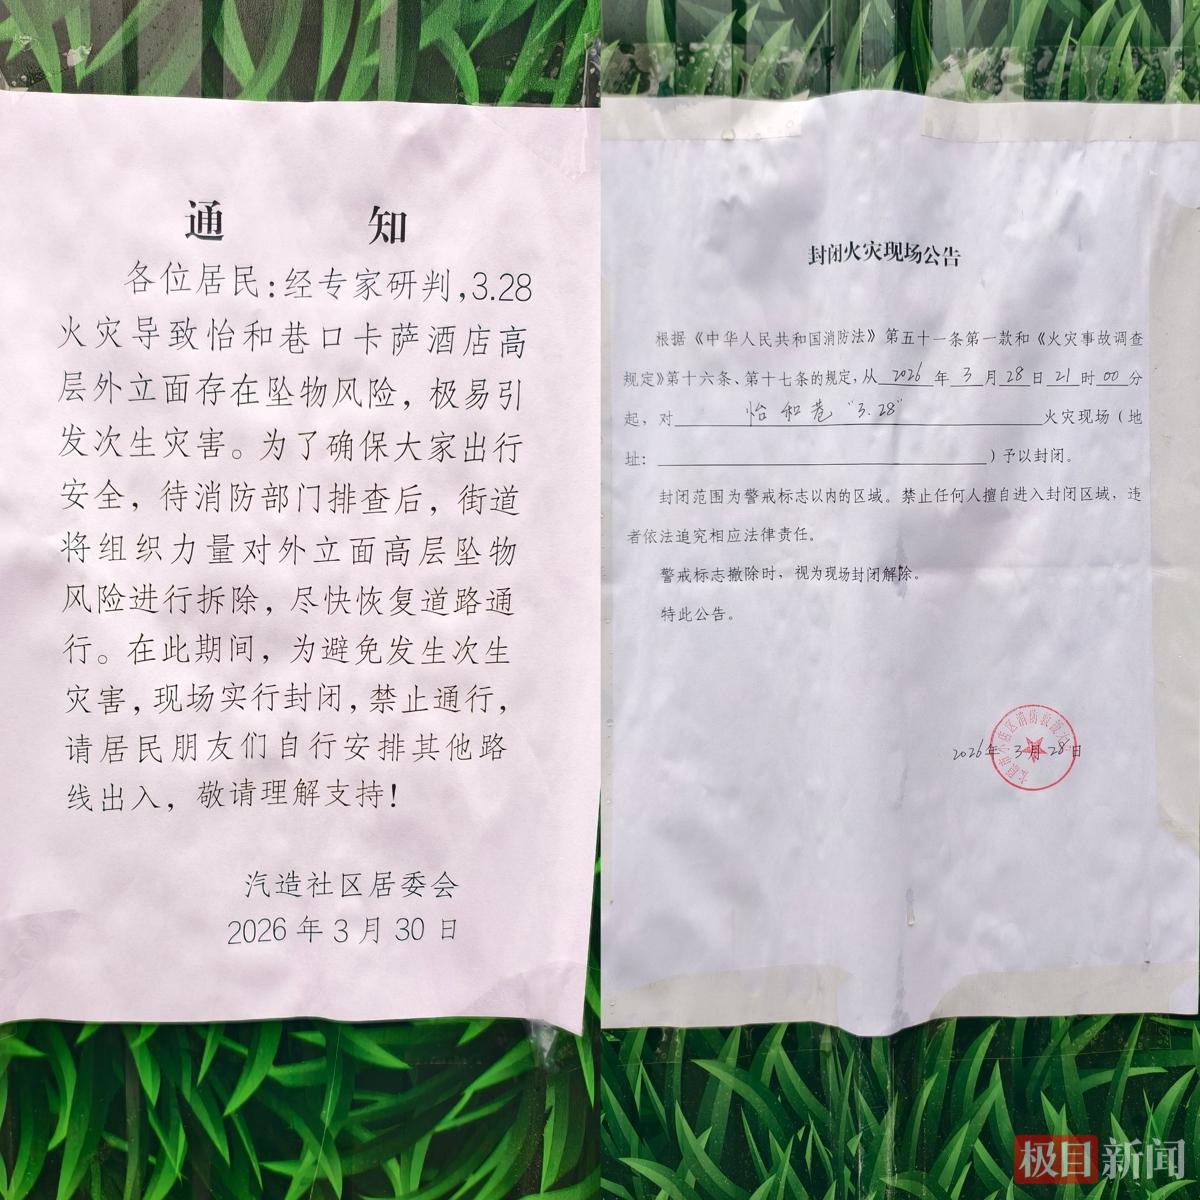 通 知
各位居民：经专家研判，3.28
火灾导致怡和巷口卡萨酒店高
层外立面存在坠物风险，极易引
发次生灾害。为了确保大家出行
安全，待消防部门排查后，街道
将组织力量对外立面高层坠物
风险进行拆除，尽快恢复道路通
行。在此期间，为避免发生次生
灾害，现场实行封闭，禁止通行，
请居民朋友们自行安排其他路
线出入，敬请理解支持！
汽造社区居委会
2026年3月30日
封闭火灾现场公告
根据《中华人民共和国消防法》第五十一条第一款和《火灾事故调查
规定》第十六条、第十七条的规定，从2026年3月28日21时00分
起，对怡和巷"3.28"火灾现场（地
址：）予以封闭。
封闭范围为警戒标志以内的区域。禁止任何人擅自进入封闭区域，违
者依法追究相应法律责任。
警戒标志撤除时，视为现场封闭解除。
特此公告。
2026年3月28日
极目新闻